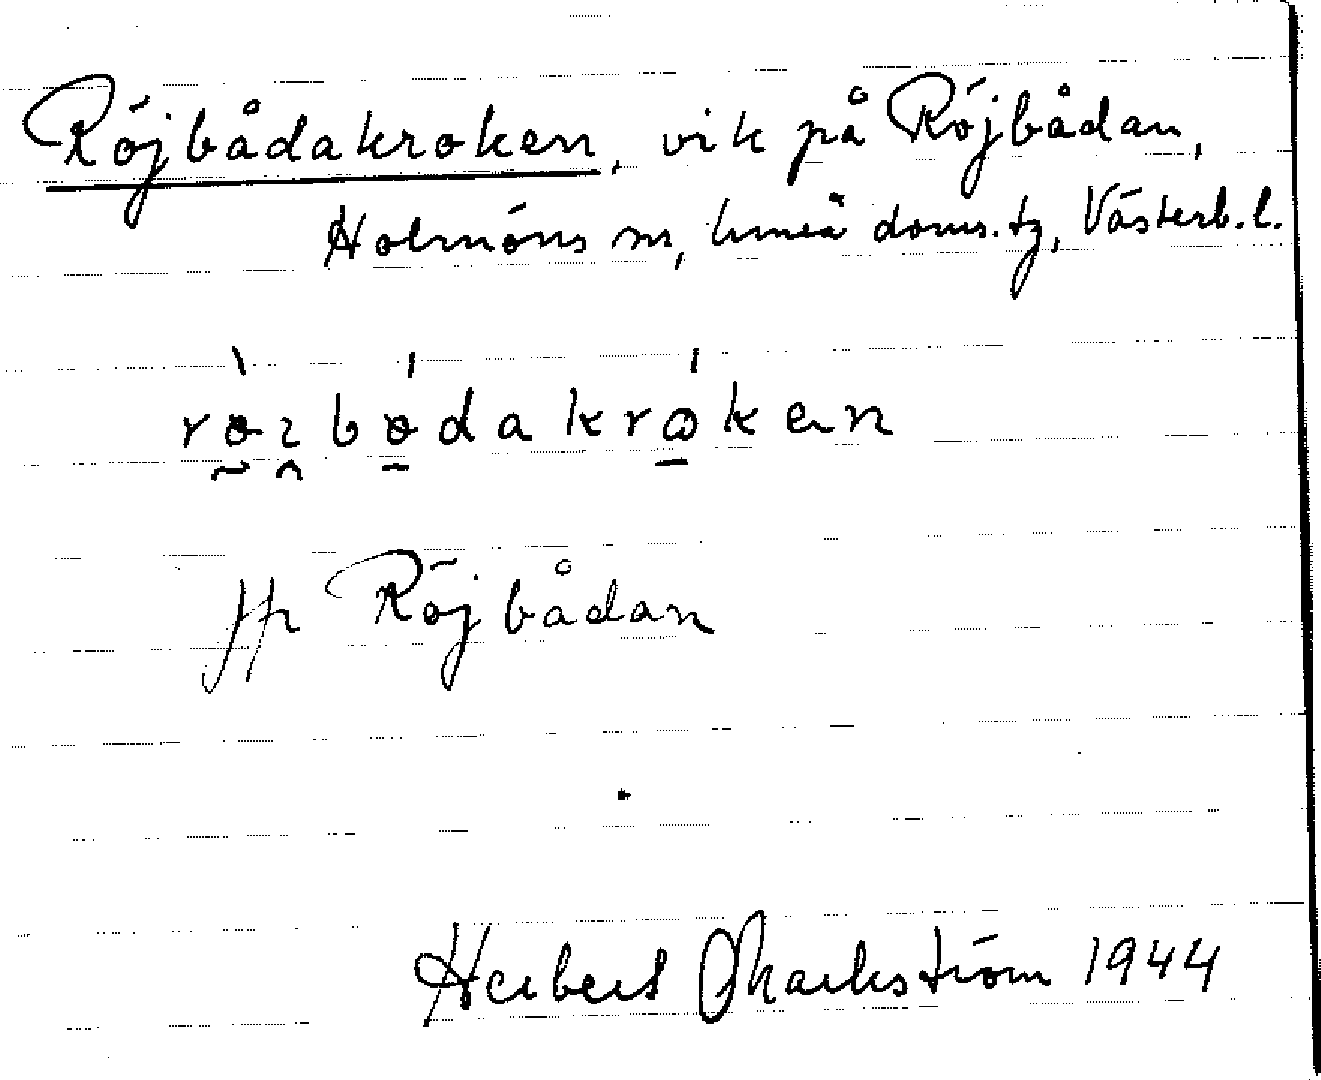 Röjbådakroken, vik på Röjbådan,
Holmöns sn, Umeå doms.tg, Västerb.l.
Röjbådan
Herbert Markström 1944